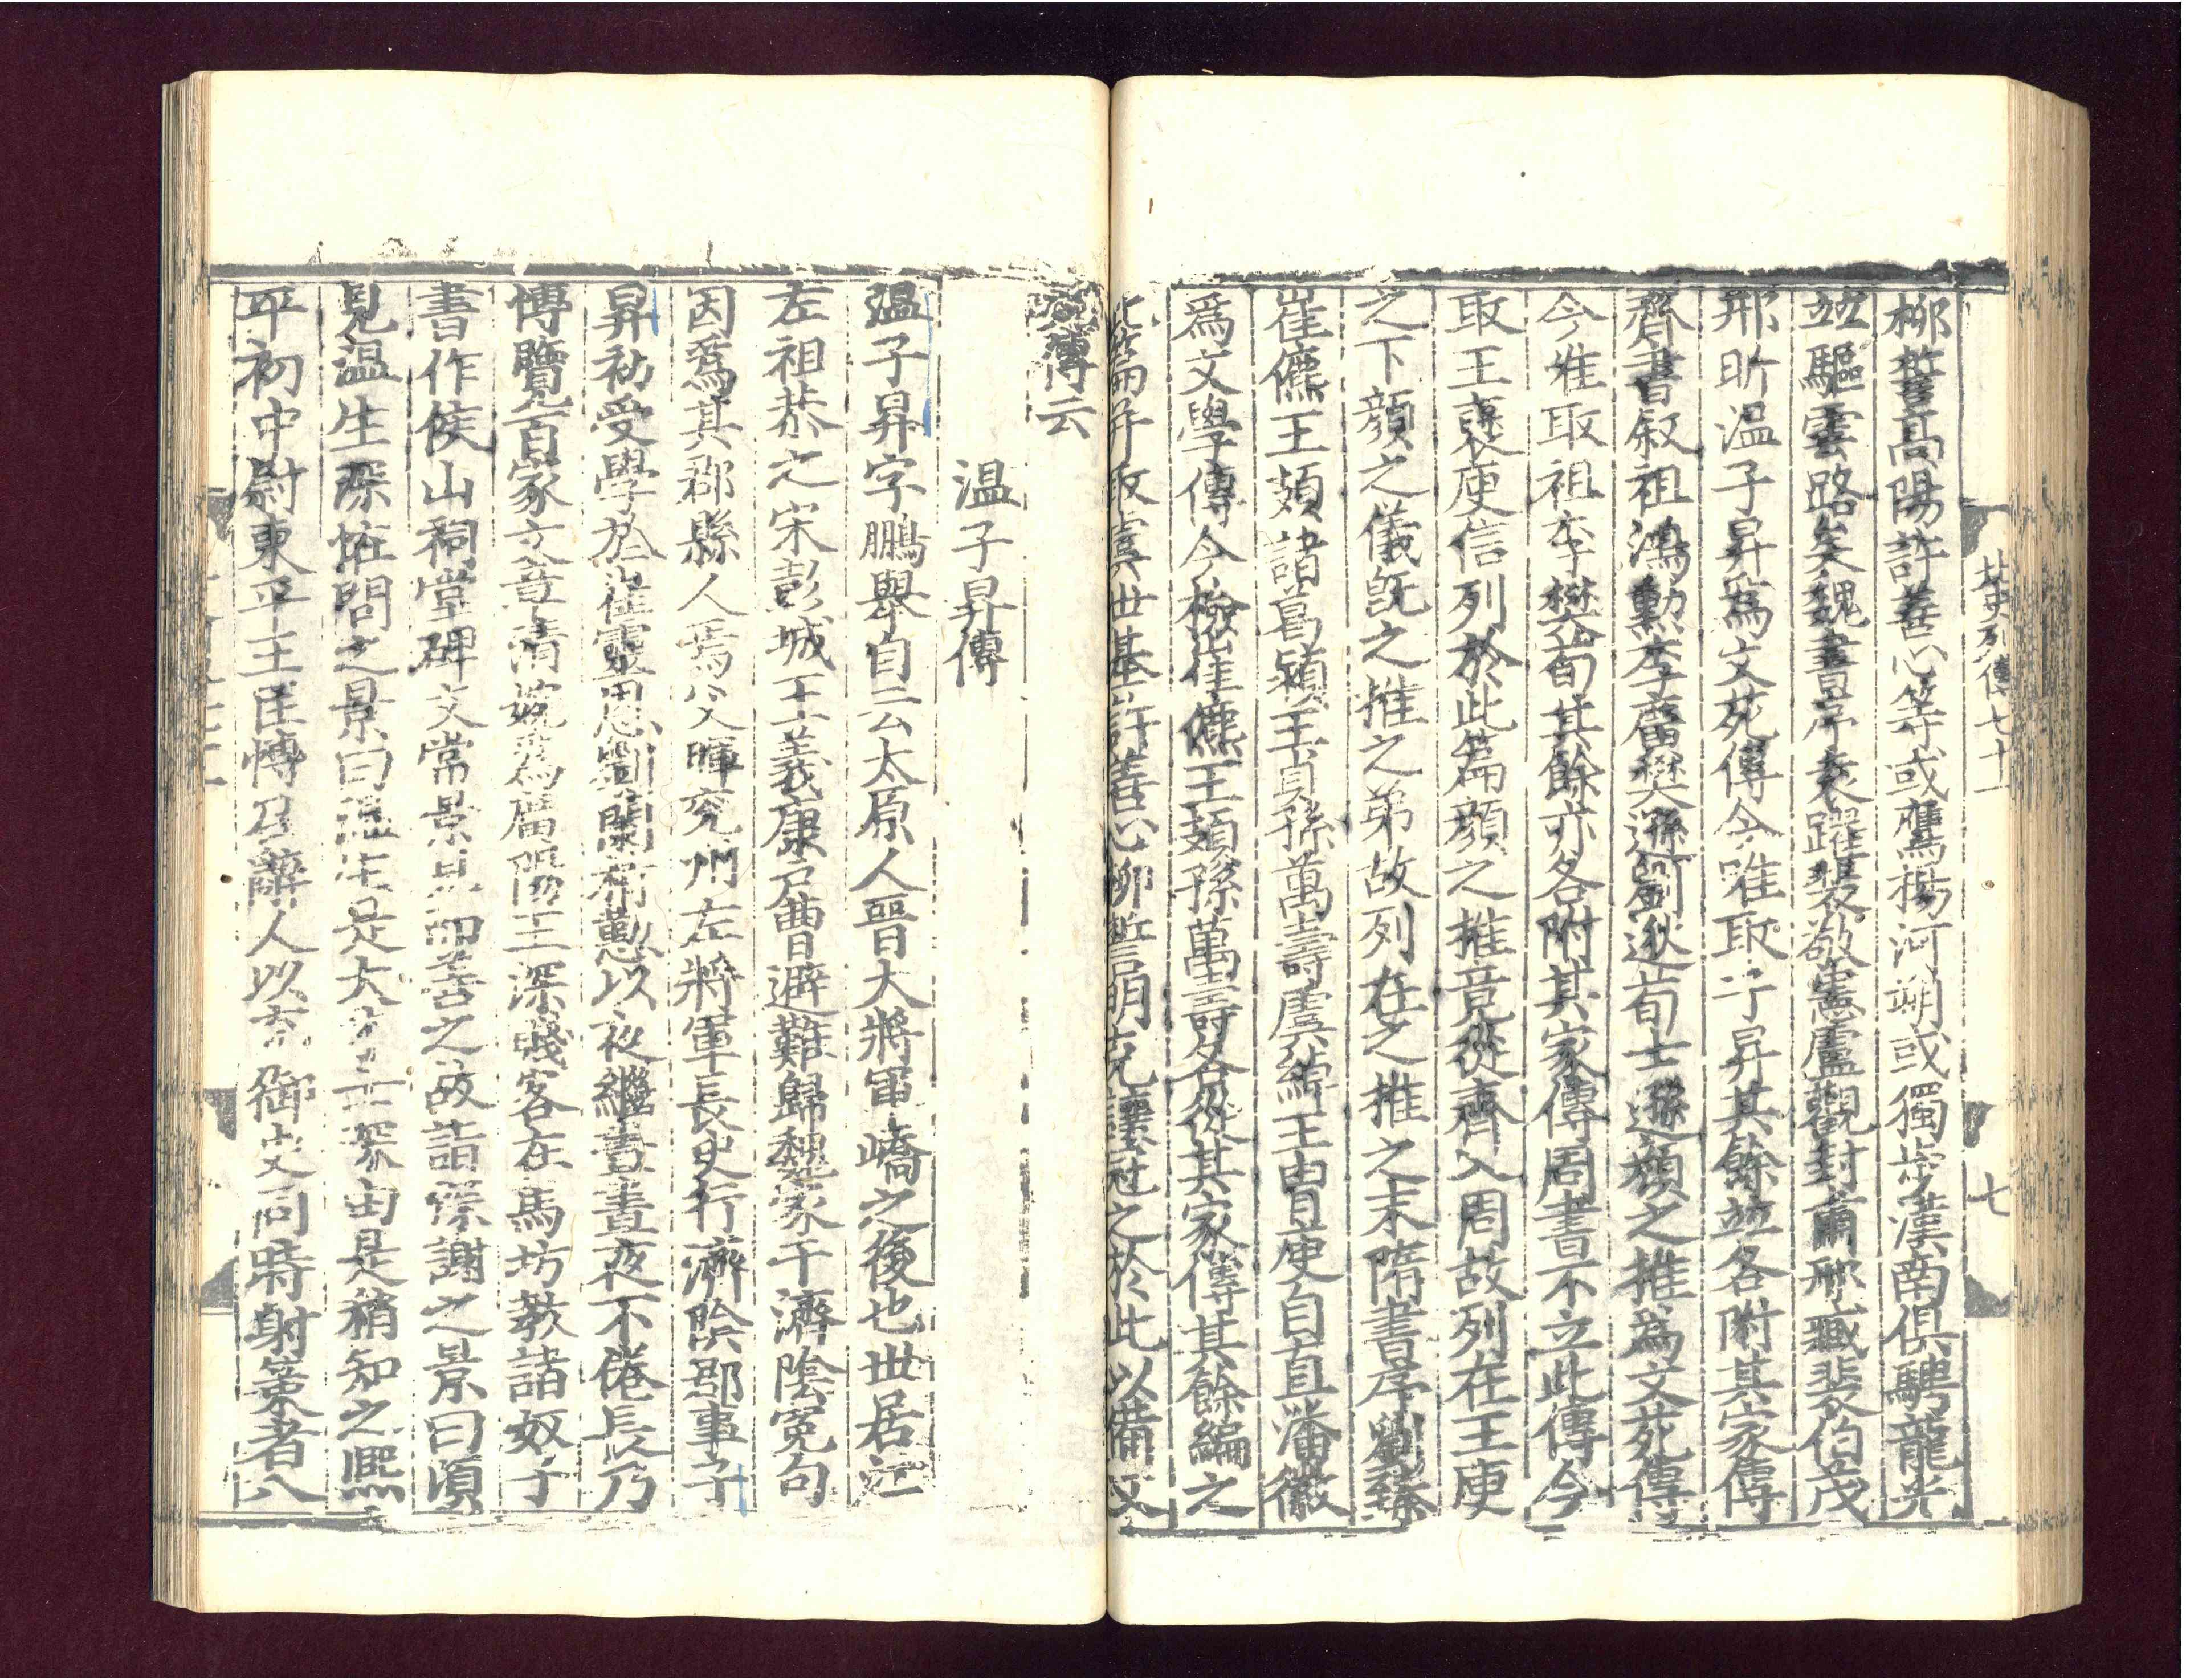 北史列傳七十一
七
柳䛒高陽許善心等或鷹揚河朔或獨步漢南俱騁龍光
並驅雲路矣魏書序袁躍裴敬憲盧觀封肅邢臧裴伯茂
邢昕温子昇爲文苑傳今唯取子昇其餘並各附其家傳
齊書叙祖鴻勲李廣樊遜劉逖荀士遜顔之推爲文苑傳
今唯取祖李樊荀其餘亦各附其家傳周書不立此傳今
取王襃庾信列於此篇顔之推竟從齊入周故列在王庾
之下顔之儀旣之推之弟故列在之推之末隋書序劉臻
崔儦王頍諸葛潁王貞孫萬壽虞綽王胄庾自直潘徽
爲文學傳今檢崔儦王頍孫萬壽各從其家傳其餘編之
此篇并取虞世基許善心柳䛒明克讓冠之於此以備文
傳云
温子昇傳
温子昇字鵬舉自云太原人晉大將軍嶠之後也世居江
左祖恭之宋彭城王義康户曹避難歸魏家于濟陰冤句
因爲其郡縣人焉父暉兖州左將軍長史行濟陰郡事子
昇初受學於崔靈恩劉蘭精懃以夜繼晝晝夜不倦長乃
博覽百家文章清婉爲廣陽王深賤客在馬坊教諸奴子
書作侯山祠堂碑文常景見而善之故詣深謝之景曰頃
見温生深怪問之景曰温生是大才士深由是稍知之熙
平初中尉東平王匡博召辭人以充御史同時射策者八